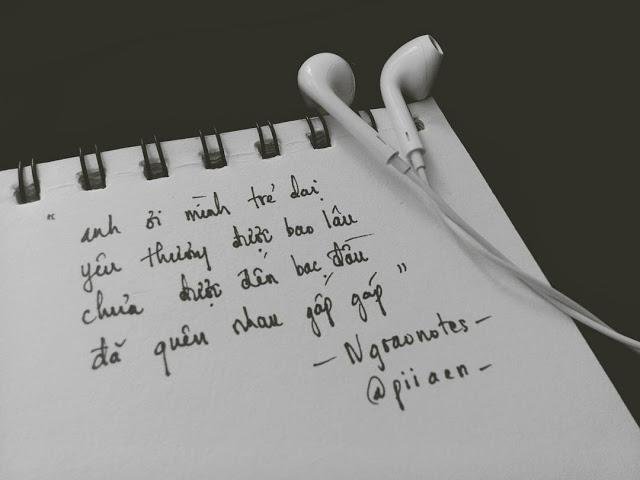 " anh ơi mình trẻ dại
yêu thương được bao lâu
chưa được đến bạc đầu
đã quên nhau gấp gáp "
- Ngraonotes -
@piiaen -